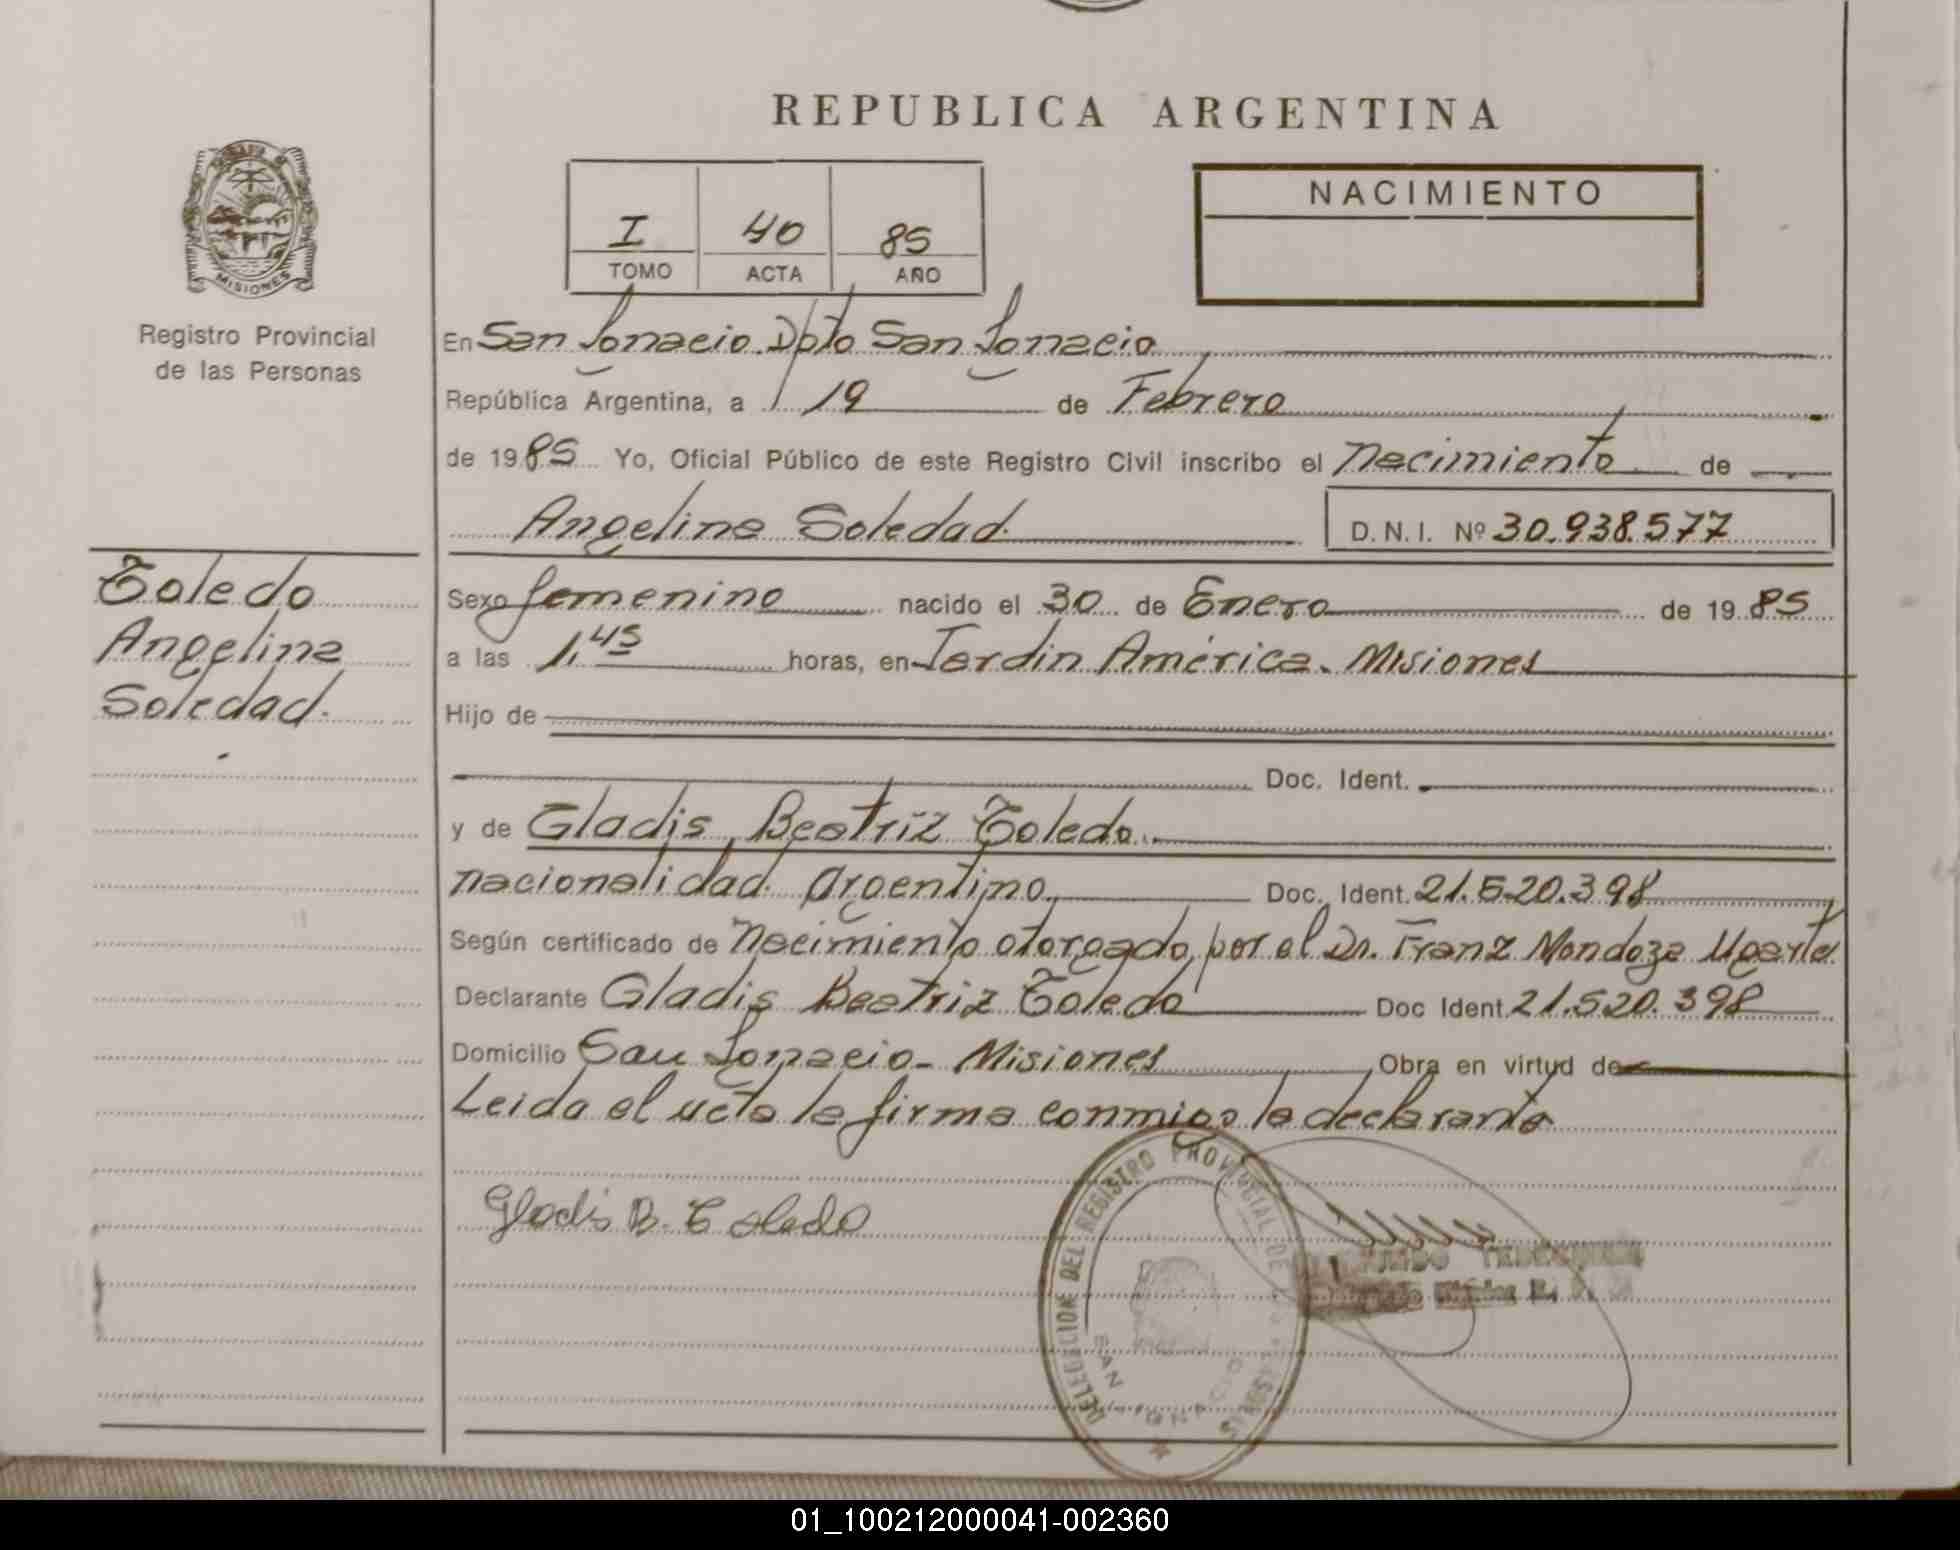 REPUBLICA ARGENTINA
MISIONES
Registro Provincial
de las Personas
I 40 85
TOMO ACTA AÑO
NACIMIENTO
En San Ignacio. Dpto San Ignacio
República Argentina, a 19 de Febrero
de 1985 Yo, Oficial Público de este Registro Civil inscribo el Nacimiento de
Angelina Soledad.
D. N. I. Nº 30.938.577
Toledo
Angelina
Soledad.
Sexo femenino nacido el 30 de Enero de 1985
a las 1,45 horas, en Jardín América. Misiones
Hijo de
Doc. Ident.
y de Gladis Beatriz Toledo.
nacionalidad argentina Doc. Ident. 21.520.398
Según certificado de Nacimiento otorgado por el Dr. Franz Mendoza Ugarte
Declarante Gladis Beatriz Toledo Doc Ident. 21.520.398
Domicilio San Ignacio - Misiones Obra en virtud de
Leida el acta la firma conmigo la declarante
Gladis B. Toledo
DELEGACION DEL REGISTRO PROVINCIAL DE
SAN IGNACIO
01_100212000041-002360